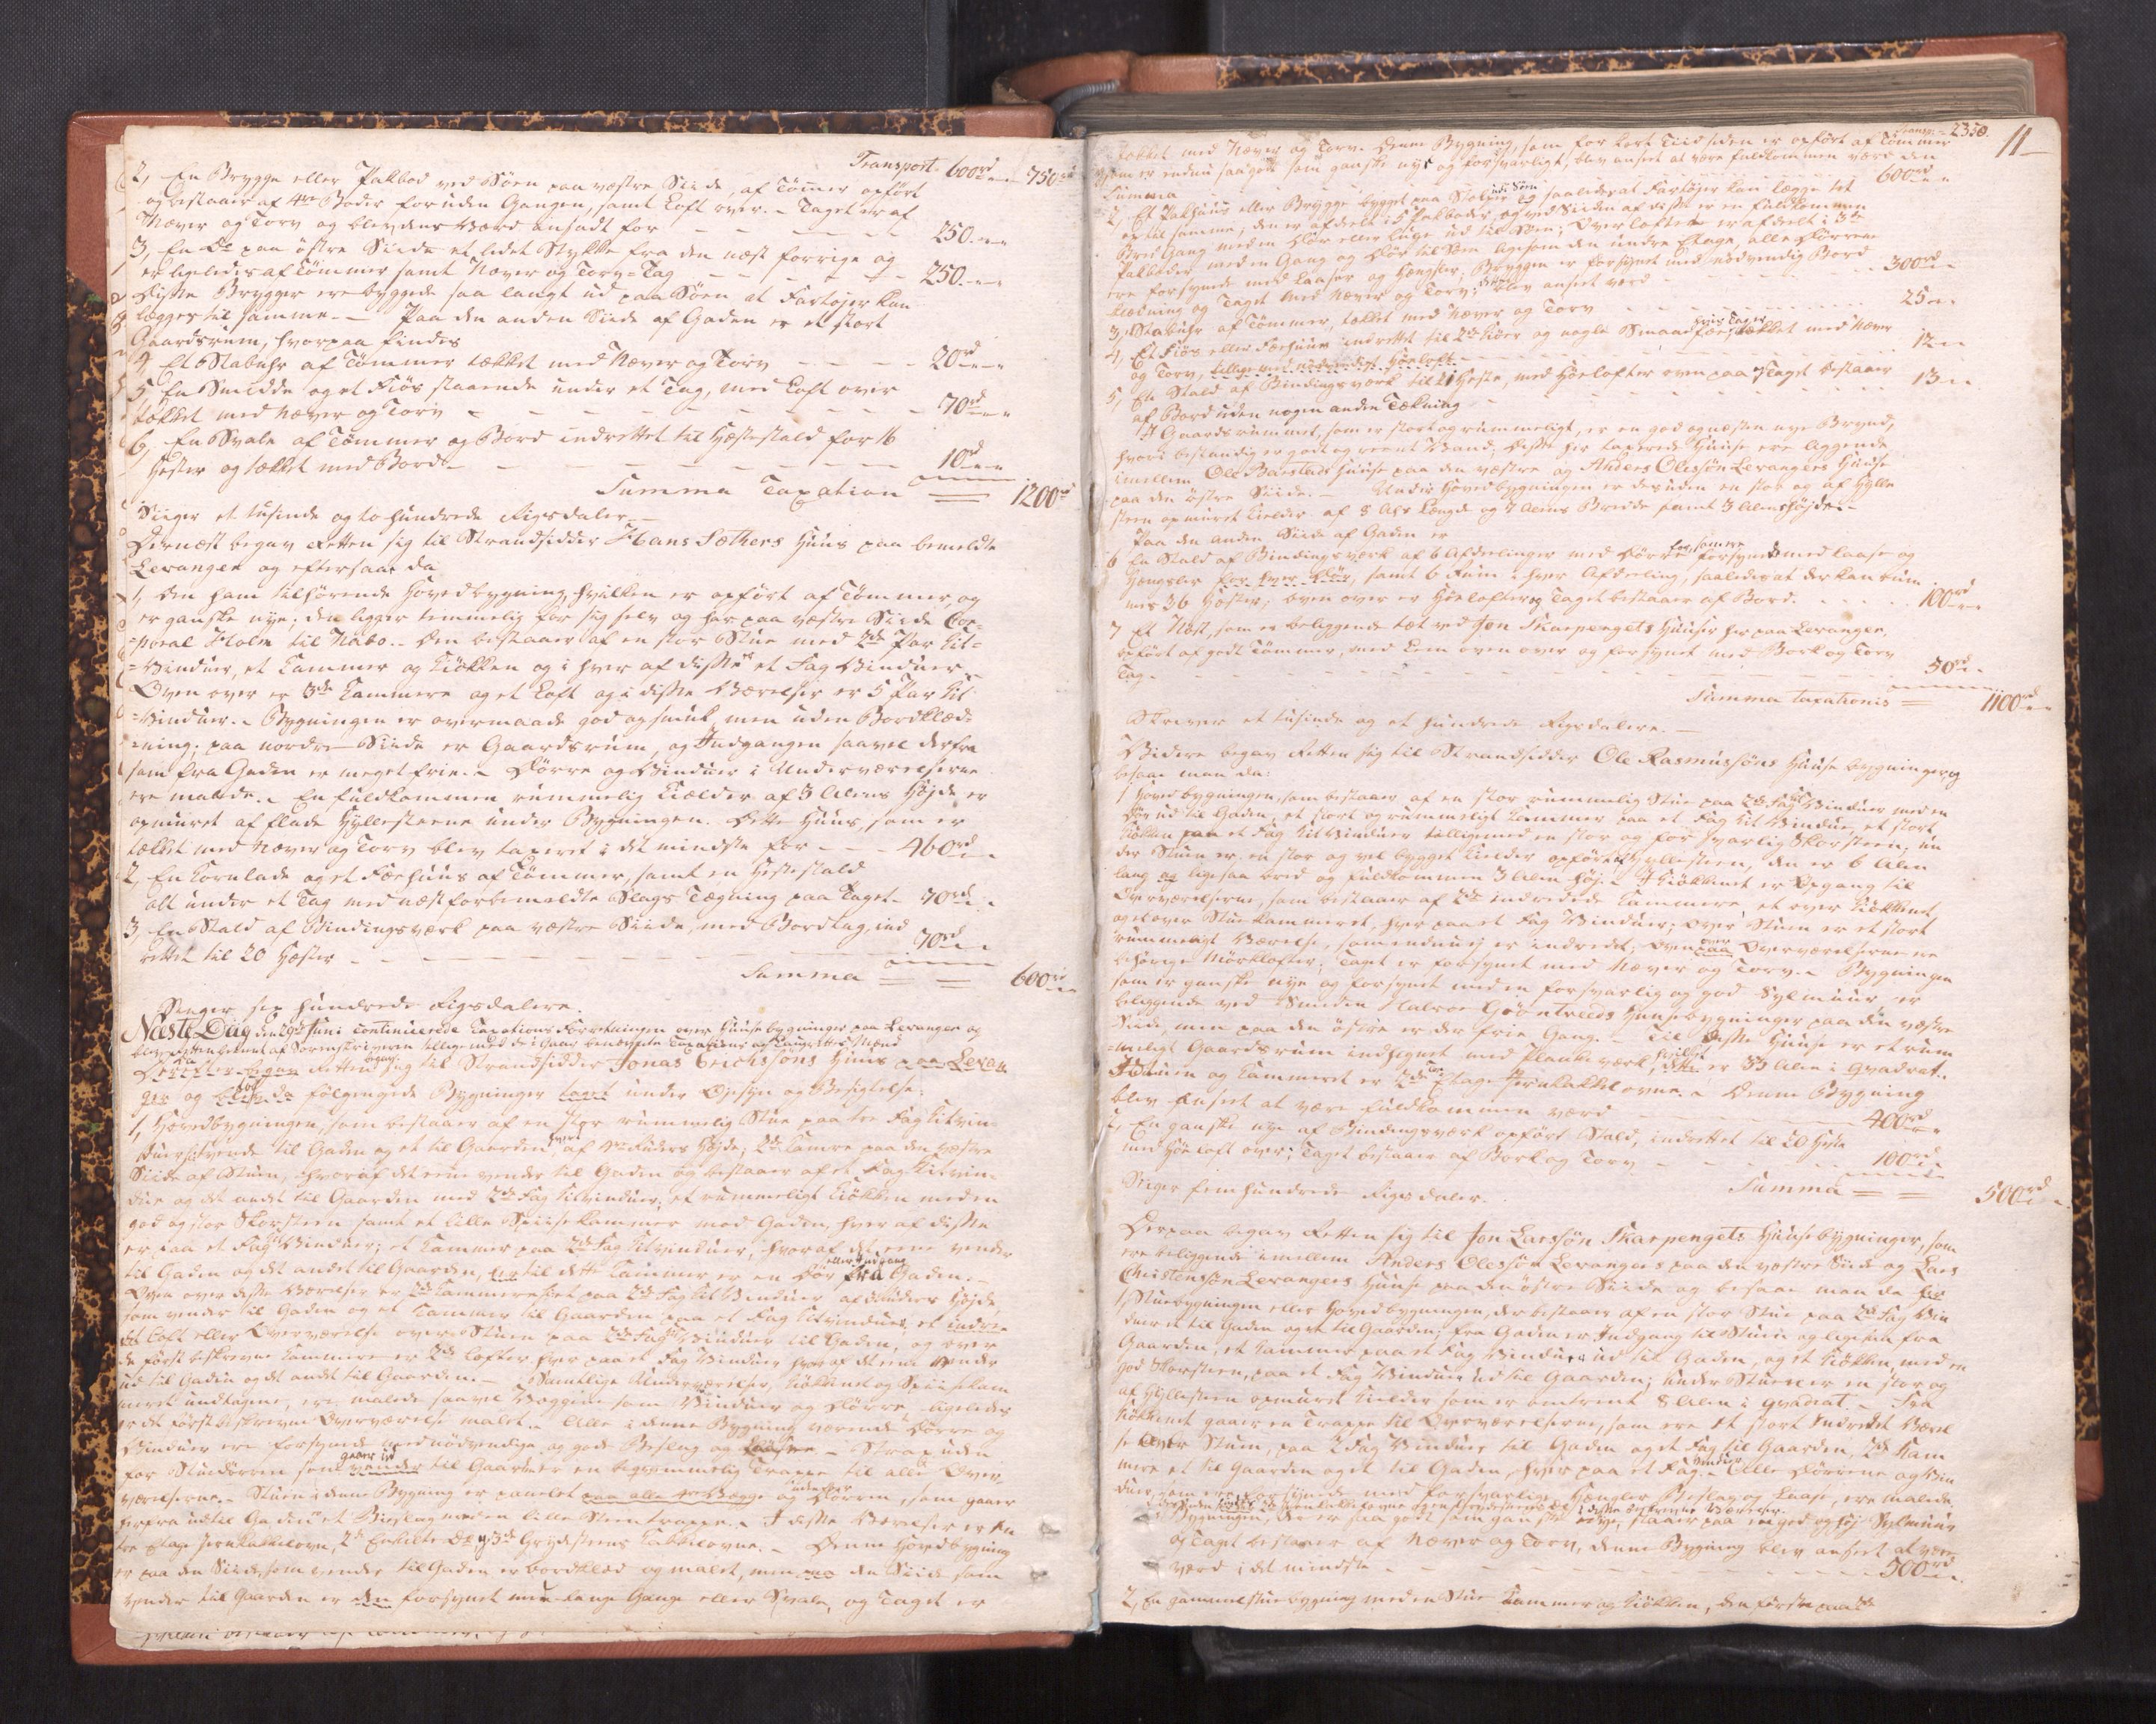 Transport 600rd 750rd
2, En Brygge eller Pakbod ved Söen paa væstre Siide, af Tömer opført
og bestaar af 4re Boder foruden Gangen, samt Loft over. - Taget er af
Næver og Torv og blev dens Værd ansadt for - - - - 250.
3, En Do paa östre Siide et lidet Stykke fra den næst forrige og
er ligeledes af Tömmer samt Næver og Torv-Tag - - - - 250.
Disse Brygger ere byggede saa langt ud paa Söen at Fartöjer kan
lægges til samme. - Paa den anden Siide af Gaden er et stort
Gaardsrum, hvorpaa findes
4 Et Stabuhr af Tömmer tækket med Næver og Torv - - - 20rd
5 En Smidde og et Fiös staaende under et Tag, med Loft over
tækket med Næver og Torv - - - - - - 70rd
6, En Svale af Tömmer og Bord indrettet til Hæstestald for 16
Hester og tækket med Bord - - - - - - 10rd
Summa Taxation 1200rd
Siiger et tusinde og tohundrede Rigsdaler
Dernæst begav Retten sig til Strandsidder Hans Sæthers Huus paa bemeldte
Levanger og eftersaae da
1, Den ham tilhørende Hovedbygning, hvilken er opført af Tömmer, og
er ganske nye; den ligger temmelig for sig selv og har paa væstre Siide Cor-
-poral Holm til Nabo. - Den bestaaer af en stor Stue med 2de Par Kit-
-Vinduer, et Kammer og Kiökken og i hver af disse et Fag Vinduer
Oven over er 3de Kammere og et Loft og i disse Værelser er 5 Par Kit
-vinduer. - Bygningen er overmaade god og smuk, men uden Bordklæd-
-ning; paa nordre Siide er Gaardsrum, og Indgangen saavel derfra
som fra Gaden er meget frie. - Dörre og Vinduer i Underværelserne
ere malede. - En fuldkommen rummelig Kielder af 3 Alens Höjde er
opmuret af flade Hyllesteene under Bygningen. Dette Huus, som er
tækket med Næver og Torv blev taxeret i det mindste for - - - 460rd
2, En Kornlade og et Fæehuus af Tömmer, samt en Hestestald
alt under et Tag med næstforbemeldte Slags Tægning paa Taget - 70rd
3, En Stald af Bindingsværk paa væstre Siide, med Bordtag, ind
rettet til 20 Hæster - - - - - - 70rd
Summa 600rd
Siiger sex hundrede Rigsdalere.
Næste Dag den 29de Juni continuerede Taxations Forretningen over Huusebygninger paa Levanger og
blev Retten betient af Sorenskriveren tillige med de i Gaar benævnte Taxations og Laugrettes Mænd
Da begav Retten sig til Strandsidder Jonas Erichssöns Huus paa Levan
ger og blev da følgende Bygninger taget under Öjesyn og Besigtelse.
1, Hovedbygningen, som bestaaer af en stor rummelig Stue paa tre Fag Kitvin
duer vende til Gaden og et til Gaarden, hvert af 4re Ruders Höjde; 2de Kamre paa den væstre
Siide af Stuen, hvoraf det eene vender til Gaden og bestaaer af et Fag Kitvin-
due og det andet til Gaarden med 2de Fag Kitvinduer; et rummeligt Kiökken med en
god og stor Skorsteen samt et lille Spiisekammer mod Gaden, hver af disse
er paa et Fag Vinduer; et Kammer paa 2de Fag Kitvinduer, hvoraf det eene vender
til Gaden og det andet til Gaarden, til dette Kammer er en Dör eller Indgang fra Gaden. -
Oven over disse Værelser er 2de Kammere paa 2de Fag Kit Vinduer af Ruders Höjde,
som vender til Gaden og et Kammer til Gaarden paa et Fag Kitvinduer; et indre-
det Loft eller Overværelse over Stuen paa 2de Fag Vinduer til Gaden, og over
de först beskrevne Kammere er 2de Lofter hver paa et Fag Vinduer hvoraf det eene vender
ud til Gaden og det andet til Gaarden. - Samtlige Underværelser, Kiökkenet og Spiisekam
meret undtagne, ere malede saavel Væggene som Vinduer og Dörre ligeledes
er det först beskrevne Overværelse malet. Alle i denne Bygning værende Dörre og
Vinduer ere forsynede med nödvendige og gode Beslag og Laase - Strax uden
for Stuedörren som gaaer ud til Gaarden er en beqvemmelig Trappe til alle Over
værelserne. - Stuen i denne Bygning er panelet paa alle 4re Vægge og Dörren, som gaaer
herfra ud til Gaden et Bislag med en lille Steentrappe. - I disse Værelser er en
tre Etage Jernkakkelovn, 2de Enkelte Do og 3de Grydesteens Kakkelovne. - Denne Hovedbygning
er paa den Siide, som vender til Gaden er bordklæd og malet, men paa den Siide som
vender til Gaarden er den forsynet med lange Gange eller Svale, og Taget er
Transp: - 2350. 11
tækket med Næver og Torv. Denne Bygning, som for kort Tiid siden er opført af Tömmer
og er endnu saagodt som ganske nye og forsvarligt, blev anseet at være fuldkommen værd den
Summa 600rd
2, Et Pakhuus eller Brygge bygget paa Stolper udi Söen saaledes at Fartöjer kan lægge til
til samme; den er afdeelt i 5 Pakboder, og ved Siiden af disse er en fuldkommen
Bred Gang med en Dör eller Luge ud til Söen; Overloftet er afdeelt i 3de
Pakboder med en Gang og Dör til Söen ligesom den undre Etage, alle Dörrene
ere forsynede med Laaser og Hængsler; Bryggen er forsynet med nödvendig Bord
klædning og Taget med Næver og Torv; Dette blev anseet værd - - 300rd
3, Stabuhr af Tömmer, tækket med Næver og Torv - - - 25
4, Et Fiös eller Fæehuus indrettet til 2de Kiöer og nogle Smaafæe, hvis Tag er tækket med Næver
og Torv, tillige med nödvendigt Höeloft - - - 12
5, En Stald af Bindingsværk til 21 Heste, med Höelofter oven paa og Taget bestaaer
af Bord uden nogen anden Tækning - - - 13
I Gaardsrummet, som er stort og rummeligt, er en god og næsten nye Brynd,
hvori bestandig er godt og reent Vand. Disse her taxerede Huuse ere liggende
imellem Ole Barstads Huuse paa den væstre og Anders Olessön Levangers Huuse
paa den östre Siide. - Under Hovedbygningen er desuden en stor og af Hylle
steen opmuret Kielder af 8 Al: Længde og 7 Alens Bredde samt 3 Alens Höjde. -
Paa den anden Siide af Gaden er
6 En Stald af Bindingsværk af 6 Afdeelinger med Dörre for samme forsynede med Laase og
Hængsler for hver Dör, samt 6 Rum i hver Afdeeling, saaledes at der kan rum
mes 36 Hæster; oven over er Höelofter og Taget bestaaer af Bord. - - 100rd
7 Et Nöst, som er beliggende tæt ved Jon Skarpengets Huuser her paa Levanger,
opført af godt Tömmer, med Lem oven over og forsynet med Bork og Torv
Tag. - - - - - - 50rd
Summa taxationis 1100rd
Skriver et tusinde og et hundrede Rigsdalere. -
Videre begav Retten sig til Strandsidder Ole Rasmussöns Huusebygninger og
besaae man da:
1 Hovedbygningen, som bestaaer af en stor rummelig Stue paa 2de Fag Vinduer med en
Dör ud til Gaden, et stort og rummeligt Kammer paa et Fag Kit Vinduer, et stort
Kiökken paa et Fag Kit Vinduer tilligemed en stor og forsvarlig Skorsteen; un
der Stuen er en stor og vel bygget Kielder opført af Hyllesteen, den er 6 Alen
lang og ligesaa bred og fuldkommen 3 Alen höj. - I Kiökkenet er Opgang til
Overværelserne, som bestaaer af 2de indredede Kammere, et over Kiökkenet
og et over Stuekammeret, hver paa et Fag Vinduer; Over Stuen er et stort
rummeligt Værelse, som endnu ej er indredet; Oven over Overværelserne ere
behörige Mörklofter; Taget er forsynet med Næver og Torv. - Bygningen
som er ganske nye og forsynet med en forsvarlig og god Sylmuur, er
beliggende ved Smeden Halvor Gröntreeds Huusebygninger paa den væstre
Siide, men paa den östre er der frie Gang. - Til disse Huuse er et rum
-meligt Gaardsrum indhegnet med Plankeværk, hvilket er 33 Alen i Qvadrat.
I Stuen og Kammeret er 2de Etage Jernkakkelovne. - Denne Bygning
blev anseet at være fuldkommen værd - - - 400rd
2, En ganske nye af Bindingsværk opført Stald, indrettet til 20 Heste
med Höeloft over; Taget bestaaer af Bork og Torv - - - 100rd
Summa 500rd
Siiger femhundrede Rigsdaler.
Derpaa begav Retten sig til Jon Larssön Skarpengets Huusebygninger, som
ere beliggende imellem Anders Olessön Levangers paa den væstre Siide og Lars
Christenssøn Levangers Huuse paa den östre Siide og besaae man da
1, Stuebygningen eller Hovedbygningen, der bestaaer af en stor Stue paa 2de Fag Vin
duer et til Gaden og et til Gaarden; fra Gaden er Indgang til Stuen og ligesaa fra
Gaarden, et Kammer paa et Fag Vinduer ud til Gaden, og et Kiökken, med en
god Skorsteen, paa et Fag Vinduer ud til Gaarden; Under Stuen er en stor og
af Hyllesteen opmuret Kielder som er omtrent 8 Alen i Qvadrat. - Fra
Kiökkenet gaaer en Trappe til Overværelserne, som ere et stort Indredet Værel
se over Stuen, paa 2 Fag Vinduer til Gaden og et Fag til Gaarden, 2de Kam
mere et til Gaarden og et til Gaden, hver paa et Fag Vinduer. - Alle Dörrene og Vin
duer, som ere forsynede med forsvarlige Hængler Beslag og Laase, ere malede.
i disse beskrevne Værelser.
Bygningen, der er saa godt som ganske nye, staaer paa en god og höj Sylmuur
og Taget bestaaer af Næver og Torv, denne Bygning blev anseet at være
værd i det mindste - - - - - 500rd
2, En gammel Stuebygning med en Stue Kammer og Kiökken, den förste paa 2de